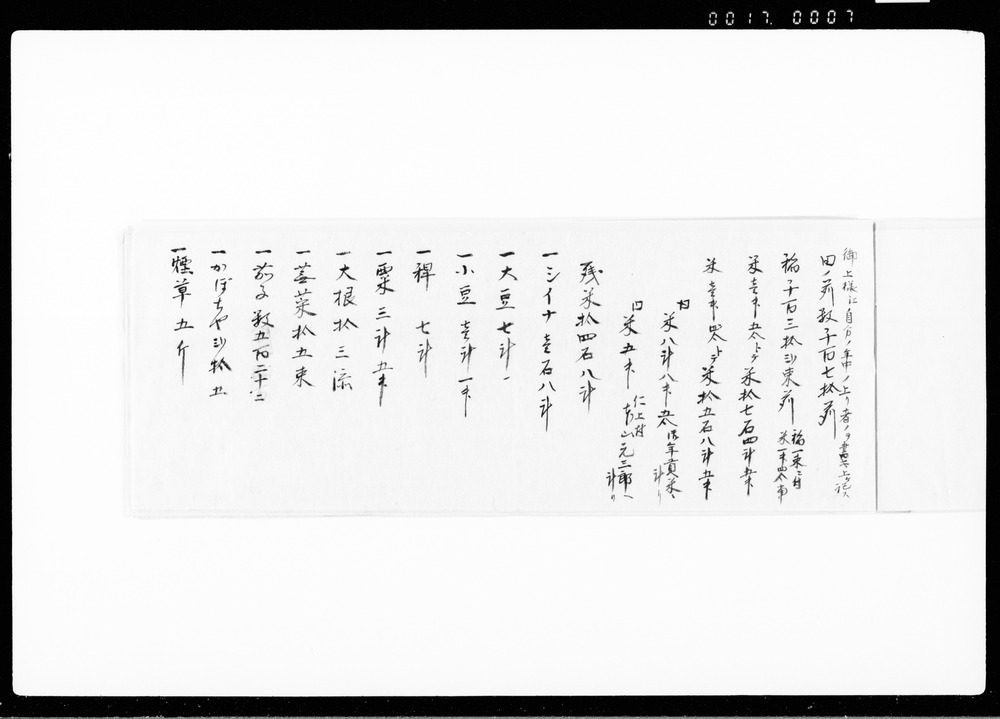 0017. 0007
御上様に自分ノ年中ノ上リ者ノヲ書上ケ記ス
田ノ苅数千百七拾苅
稲千百三拾弐束苅 稲一束ニ付 米一升四合
米壱升五合トシテ米拾七石四斗五升
米壱升四合トシテ米拾五石八斗五升
内 米八斗八升五合 年貢米 斗リ
内 米五升 仁上村 青山元三郎へ 斗リ
残米拾四石八斗
一シイナ壱石八斗
一大豆七斗
一小豆 壱斗一升
一稗 七斗
一粟三斗五升
一大根拾三
一菜拾五束
一茄子数五百二十二
一かぼちや弐拾五
一煙草五斤